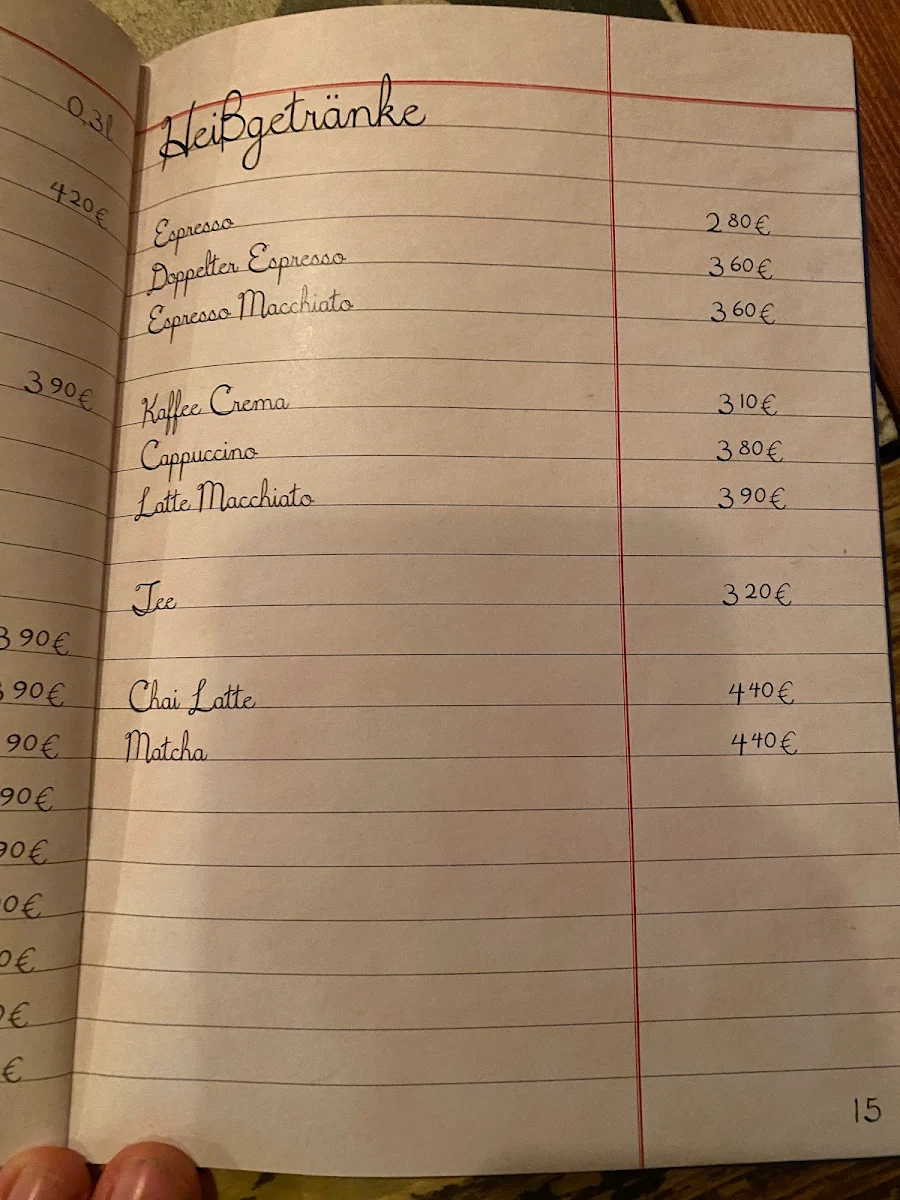 0,3l
420€
390€
390€
90€
90€
90€
90€
0€
0€
€
€
Heißgetränke
Espresso 280€
Doppelter Espresso 360€
Espresso Macchiato 360€
Kaffee Crema 310€
Cappuccino 380€
Latte Macchiato 390€
Tee 320€
Chai Latte 440€
Matcha 440€
15